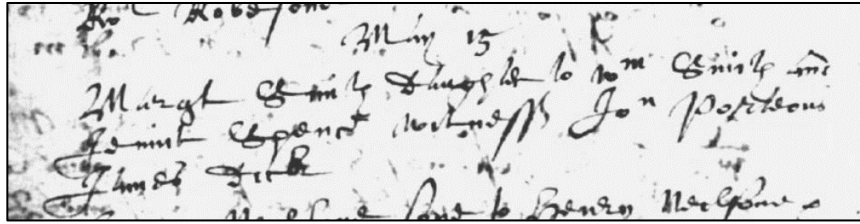 Ro^t Robesone
May 15
Margt Smith Daughter to W^m Smith and
Jennit Spence witness Jo^n Porteous
James Dick
sone to Henry Neilsone